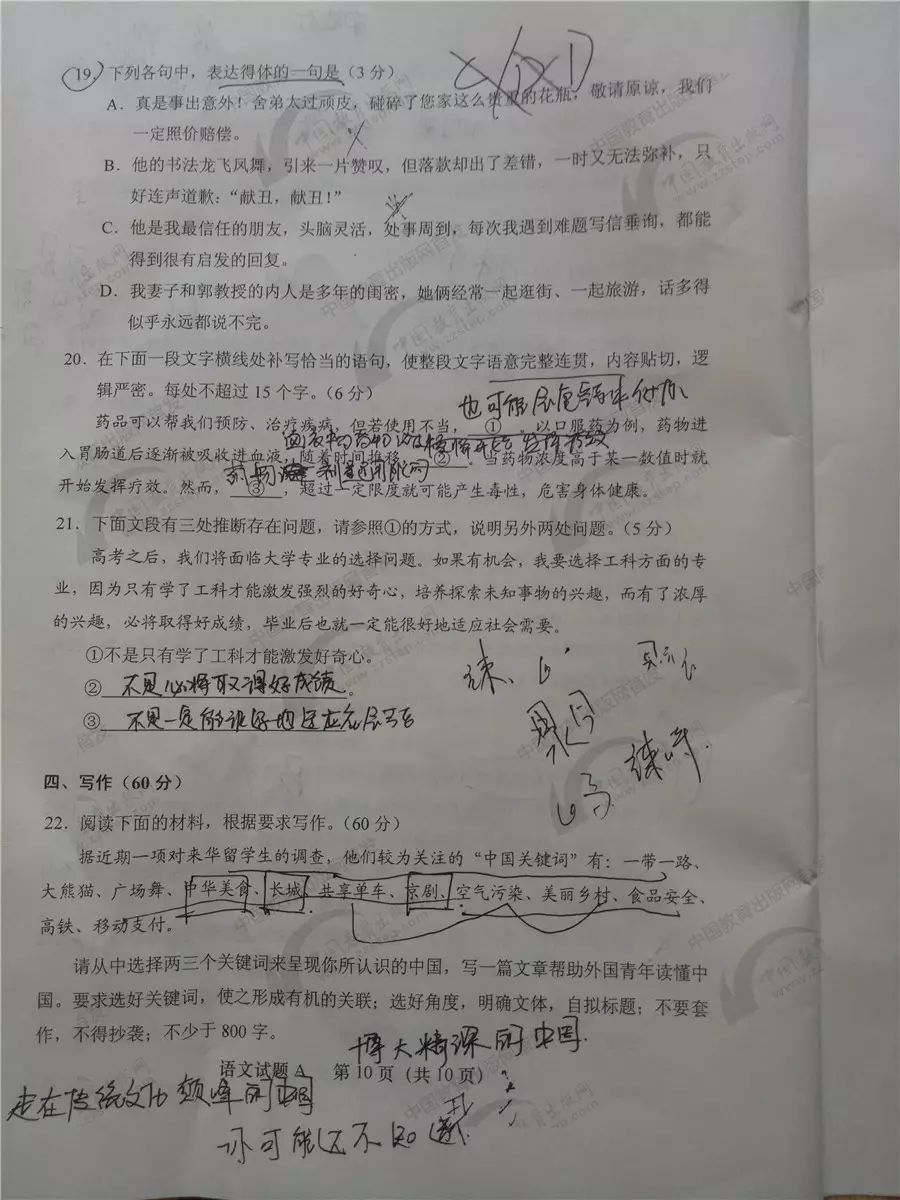 19. 下列各句中，表达得体的一句是（3 分）
A．真是事出意外！舍弟太过顽皮，碰碎了您家这么贵重的花瓶，敬请原谅，我们
一定照价赔偿。
B．他的书法龙飞凤舞，引来一片赞叹，但落款却出了差错，一时又无法弥补，只
好连声道歉：“献丑，献丑！”
C．他是我最信任的朋友，头脑灵活，处事周到，每次我遇到难题写信垂询，都能
得到很有启发的回复。
D．我妻子和郭教授的内人是多年的闺密，她俩经常一起逛街、一起旅游，话多得
似乎永远都说不完。
20．在下面一段文字横线处补写恰当的语句，使整段文字语意完整连贯，内容贴切，逻
辑严密。每处不超过 15 个字。（6 分）
也可能
药品可以帮我们预防、治疗疾病，但若使用不当，①。以口服药为例，药物进
血液中的药物
入胃肠道后逐渐被吸收进血液，随着时间推移，②。当药物浓度高于某一数值时就
药物
开始发挥疗效。然而，③，超过一定限度就可能产生毒性，危害身体健康。
21．下面文段有三处推断存在问题，请参照①的方式，说明另外两处问题。（5 分）
高考之后，我们将面临大学专业的选择问题。如果有机会，我要选择工科方面的专
业，因为只有学了工科才能激发强烈的好奇心，培养探索未知事物的兴趣，而有了浓厚
的兴趣，必将取得好成绩，毕业后也就一定能很好地适应社会需要。
①不是只有学了工科才能激发好奇心。
② 不是必将取得好成绩。
③ 不是一定能很好地适应
四、写作（60 分）
22．阅读下面的材料，根据要求写作。（60 分）
据近期一项对来华留学生的调查，他们较为关注的“中国关键词”有：一带一路、
大熊猫、广场舞、中华美食、长城、共享单车、京剧、空气污染、美丽乡村、食品安全、
高铁、移动支付。
请从中选择两三个关键词来呈现你所认识的中国，写一篇文章帮助外国青年读懂中
国。要求选好关键词，使之形成有机的关联；选好角度，明确文体，自拟标题；不要套
作，不得抄袭；不少于 800 字。
博大精深的中国
语文试题 A 第 10 页（共 10 页）
走在传统文化巅峰的中国
你可能还不知道